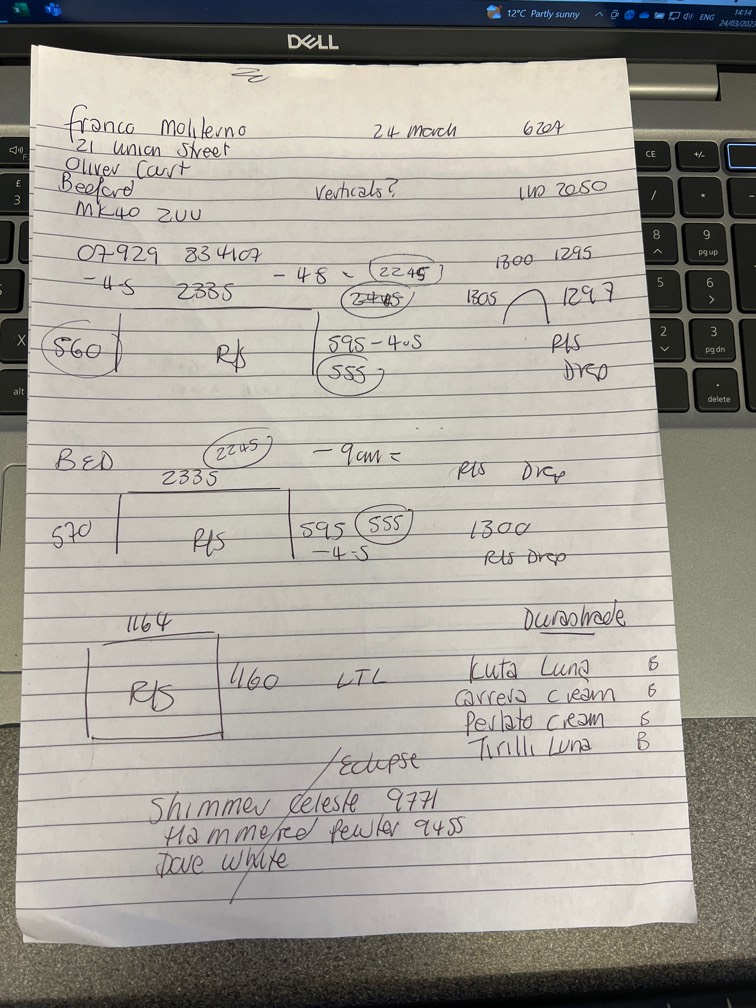 12°C Partly sunny
ENG
14:14
DELL
Franco Moliterno 24 March 6204
21 Union Street
Oliver Cart
Beeford Verticals? LUD 2050
MK40 2UU
07929 834107
-45 2335 -48 = 2245 1300 1295
1305 1297
560 R/S 595-4.5 R/S
555 Drop
BED 2245 -9cm =
2335 R/S Drop
570 R/S 595 555 1300
-4.5 R/S Drop
1164 Durashade
R/S 1160 LTL Kuta Luna B
Carrera Cream B
Perlato Cream B
Tirilli Luna B
Eclipse
Shimmer Celeste 9771
Hammered Pewter 9455
Dove White